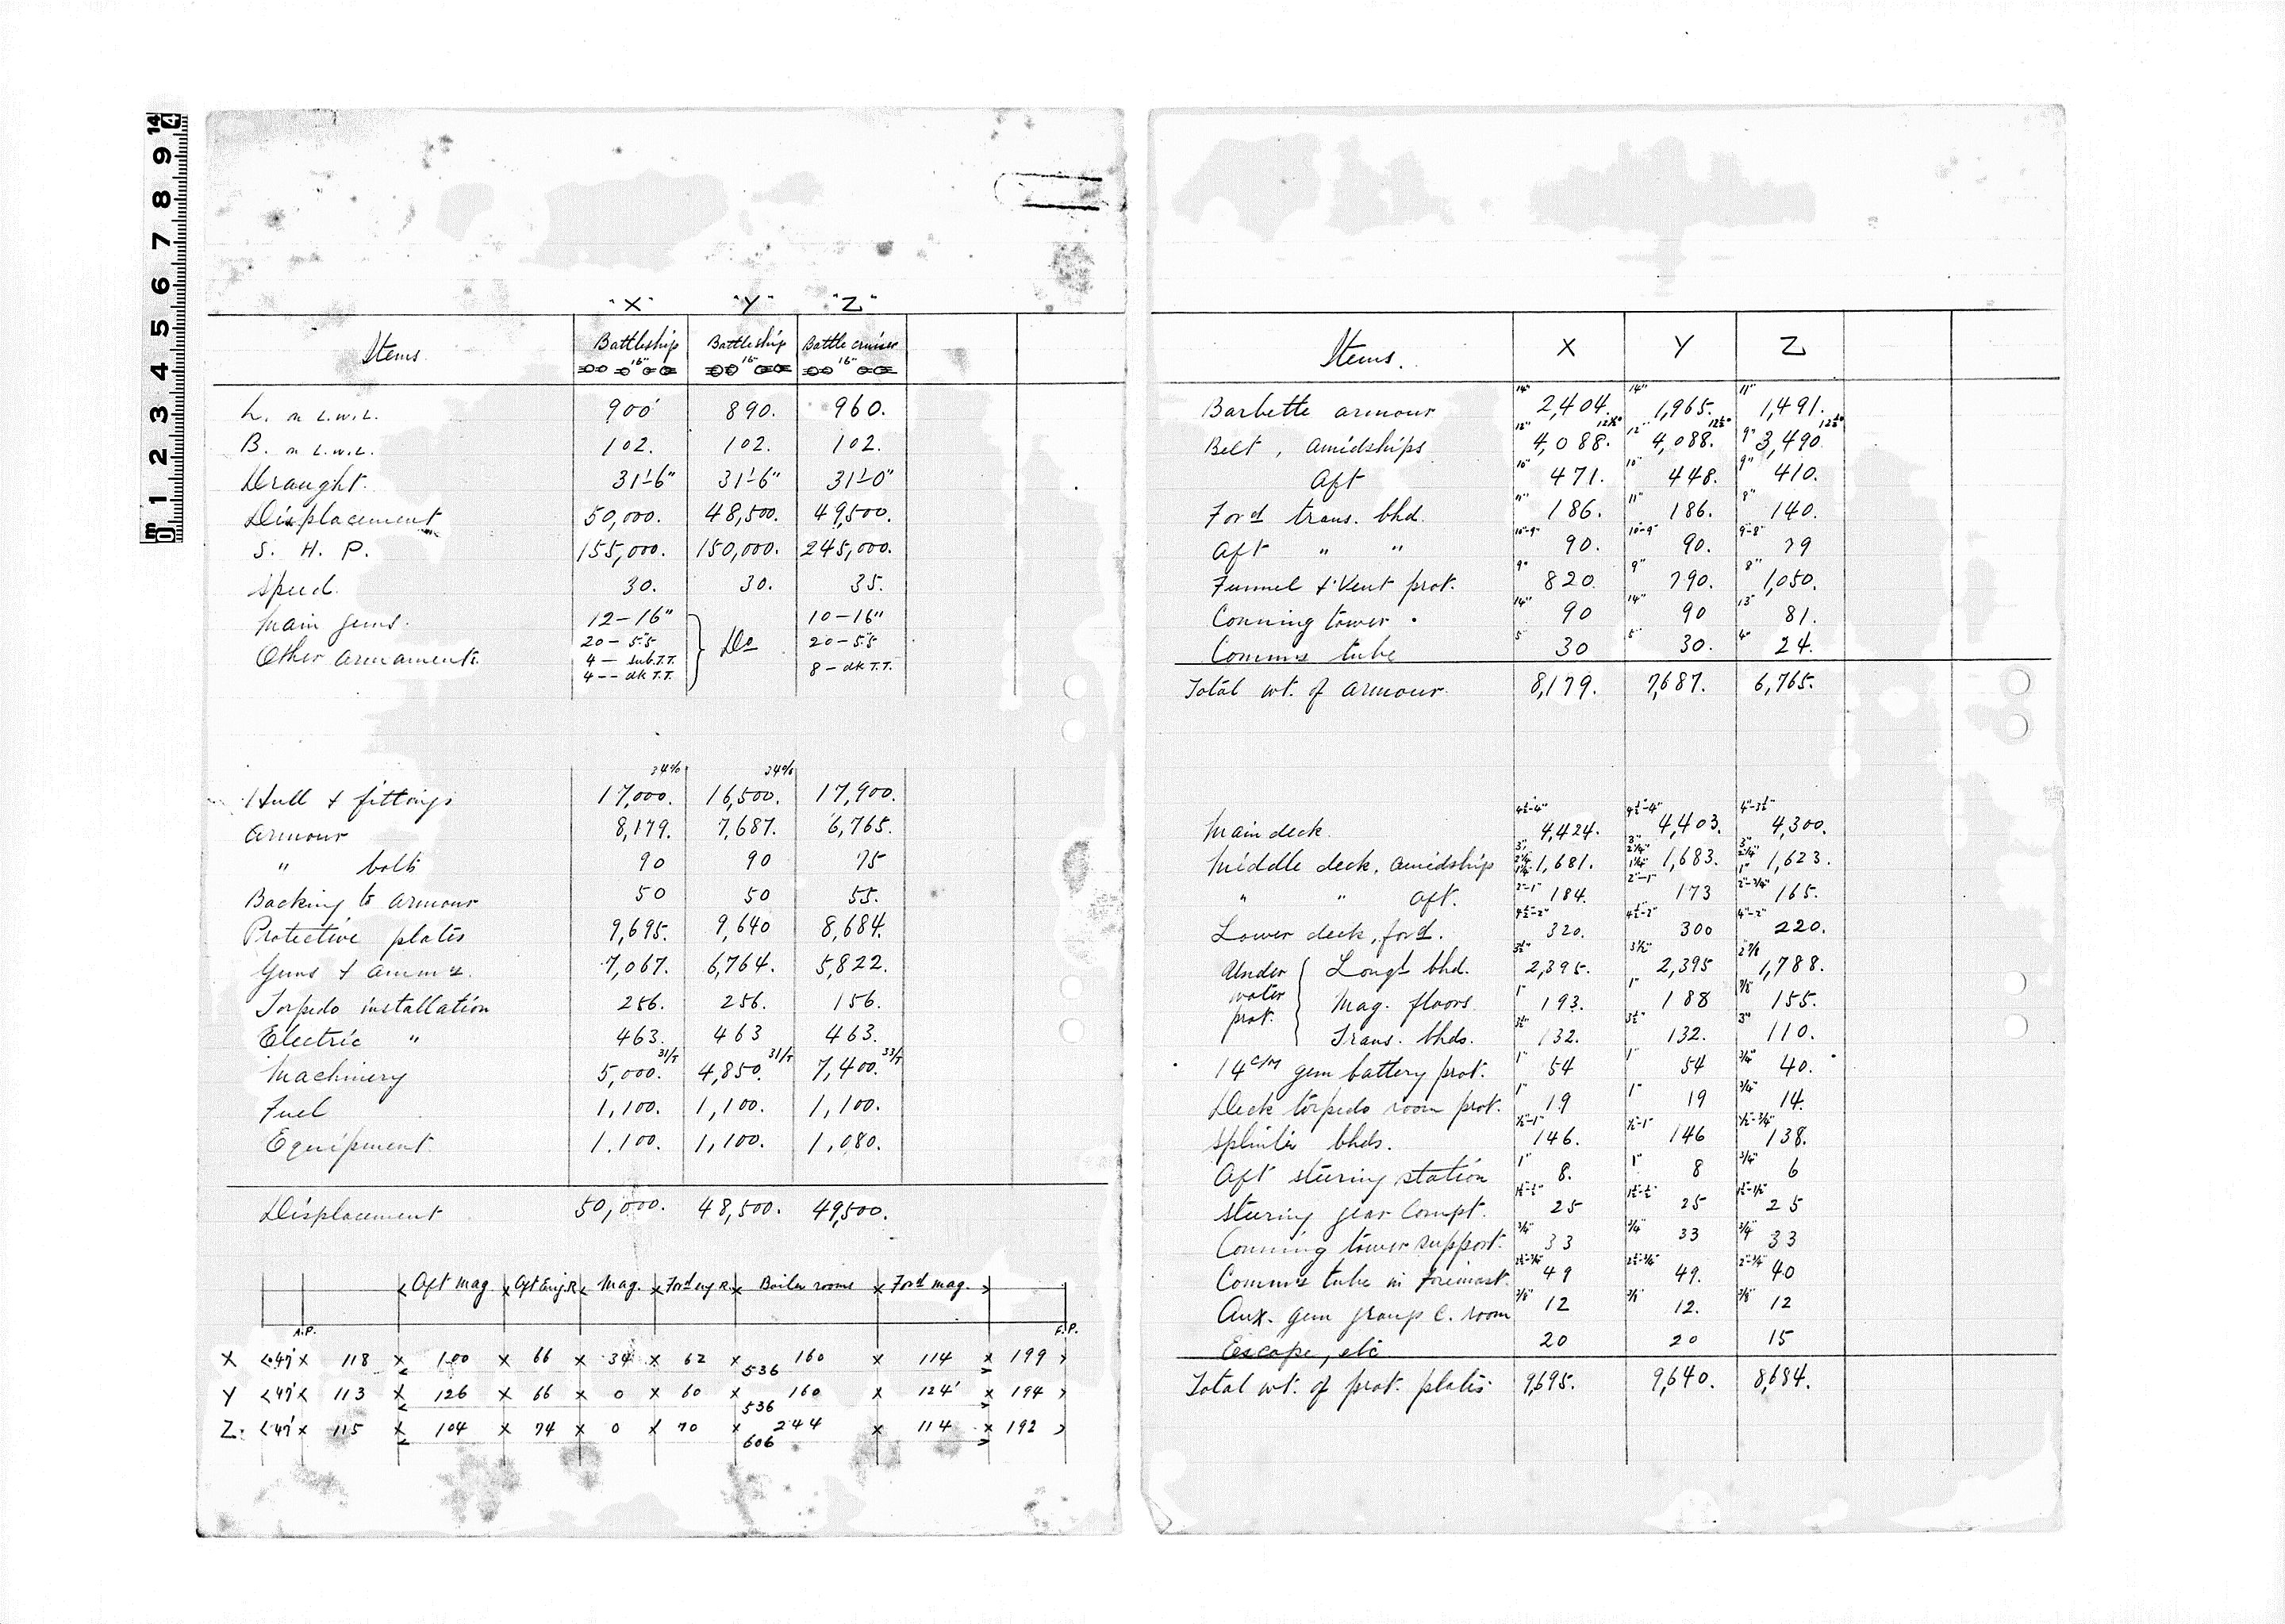 "X" "Y" "Z"
Items. Battleship 16" Battleship 16" Battle cruiser 16"
L. on L.W.L. 900' 890. 960.
B. on L.W.L. 102. 102. 102.
Draught. 31'-6" 31'-6" 31'-0"
Displacement 50,000. 48,500. 49,500.
S. H. P. 155,000. 150,000. 245,000.
Speed. 30. 30. 35.
Main guns. 12-16" Do 10-16"
Other armaments. 20-5".5 20-5".5
4 - sub.T.T. 8 - dk T.T.
4 -- dk T.T.
34% 34%
Hull & fittings 17,000. 16,500. 17,900.
Armour 8,179. 7,687. 6,765.
" bolts 90 90 75
Backing to armour 50 50 55.
Protective plates 9,695. 9,640 8,684.
Guns & ammn. 7,067. 6,764. 5,822.
Torpedo installation 256. 256. 156.
Electric " 463. 463 463.
Machinery 5,000. 31/T 4,850. 31/T 7,400. 33/T
Fuel 1,100. 1,100. 1,100.
Equipment. 1,100. 1,100. 1,080.
Displacement 50,000. 48,500. 49,500.
Aft mag Aft Eng.R. Mag. Ford eng R. Boiler rooms Ford mag.
A.P. F.P.
X 47' 118 100 66 34 62 160 114 199
536
Y 47' 113 126 66 0 60 160 124' 194
536
Z. 47' 115 104 74 0 70 244 114 192
606
Items. X Y Z
Barbette armour 14" 2,404. 14" 1,965. 11" 1,491.
Belt, amidships 12" 4,088. 12" 4,088. 9" 3,490.
Aft 10" 471. 10" 448. 9" 410.
Ford trans. bhd. 11" 186. 11" 186. 8" 140.
Aft " " 10"-9" 90. 10"-9" 90. 9"-8" 79
Funnel & Vent prot. 9" 820. 9" 790. 8" 1,050.
Conning tower. 14" 90 14" 90 13" 81.
Commn tube 5" 30 5" 30. 4" 24.
Total wt. of armour. 8,179. 7,687. 6,765.
Main deck 4½"-4" 4,424. 4½"-4" 4,403. 4"-3½" 4,300.
Middle deck, amidship 3" 2¼" 1¼" 1,681. 3" 2¼" 1¼" 1,683. 3" 2¼" 1" 1,623.
" " aft. 2"-1" 184. 2"-1" 173 2"-3/4" 165.
Lower deck, ford. 4½"-2" 320. 4½"-2" 300 4"-2" 220.
Under water prot. Longl bhd. 3½" 2,395. 3½" 2,395 2 7/8 1,788.
Mag. floors 1" 193. 1" 188 7/8" 155.
Trans. bhds. 3½" 132. 3½" 132. 3" 110.
14 c/m gun battery prot. 1" 54 1" 54 3/4" 40.
Deck torpedo room prot. 1" 19 1" 19 3/4" 14.
Splinter bhds. ½"-1" 146. ½"-1" 146 ½"-3/4" 138.
Aft steering station 1" 8. 1" 8 3/4" 6
Steering gear Compt. 25 25 25
Conning tower support. 3/4" 33 3/4" 33 3/4" 33
Commn tube in Foremast. 49 49. 2"-3/4" 40
Aux. gun group C. room 3/8" 12 3/8" 12. 3/8" 12
Escape, etc 20 20 15
Total wt. of prot. plates. 9,695. 9,640. 8,684.
0 1 2 3 4 5 6 7 8 9